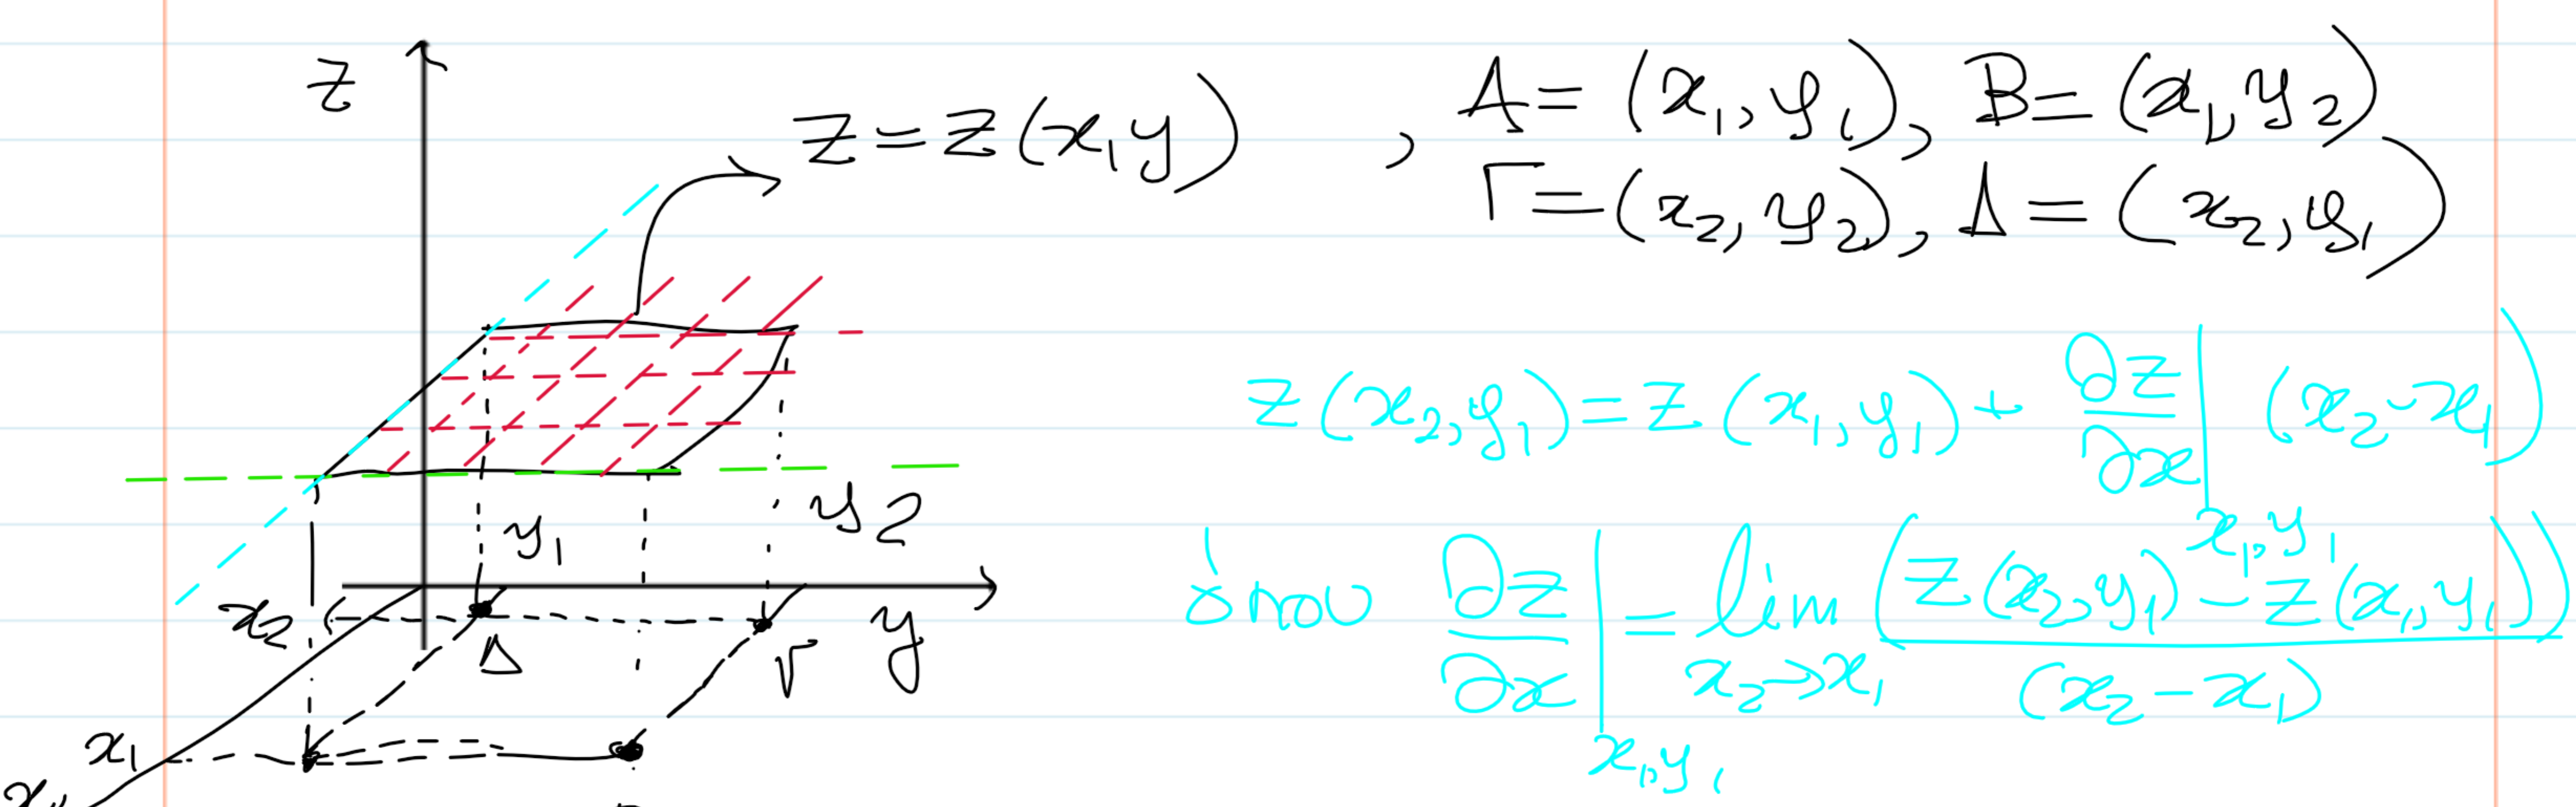 z
z = z(x, y) , A = (x₁, y₁), B = (x₁, y₂)
Γ = (x₂, y₂), Δ = (x₂, y₁)
z(x₂, y₁) = z(x₁, y₁) + ∂z/∂x|x₁, y₁ (x₂ - x₁)
y₁ y₂
όπου ∂z/∂x|x₁, y₁ = lim x₂→x₁ (z(x₂, y₁) - z(x₁, y₁))/(x₂ - x₁)
x₂ Δ Γ y
x₁
x